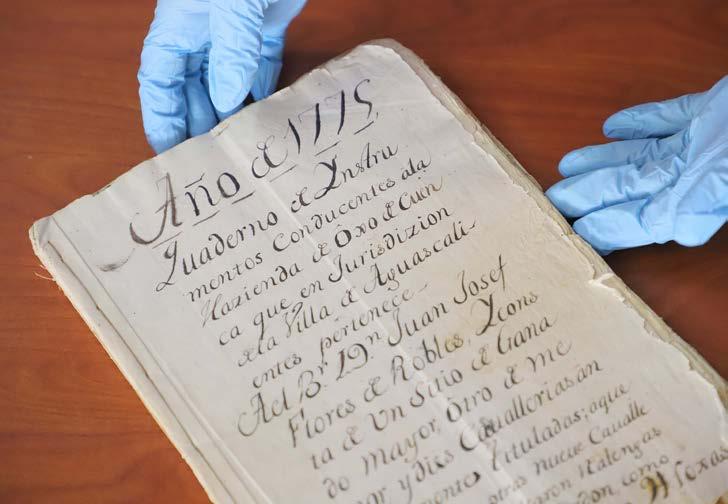 Año de 1775,
Quaderno de Ynstru
mentos conducentes ala
Hazienda de Oxo de Cuen
ca que en Jurisdizion
dela Villa de Aguascali-
entes pertenece-
Act Br. Dn Juan Josef
Flores de Robles, Ycons
ta de Un Sitio de Gana
do mayor, Otro de me
or y diés Cavallerias án
mente tituladas; aque
otras nueve Cavalle
eron Realengas
dan como